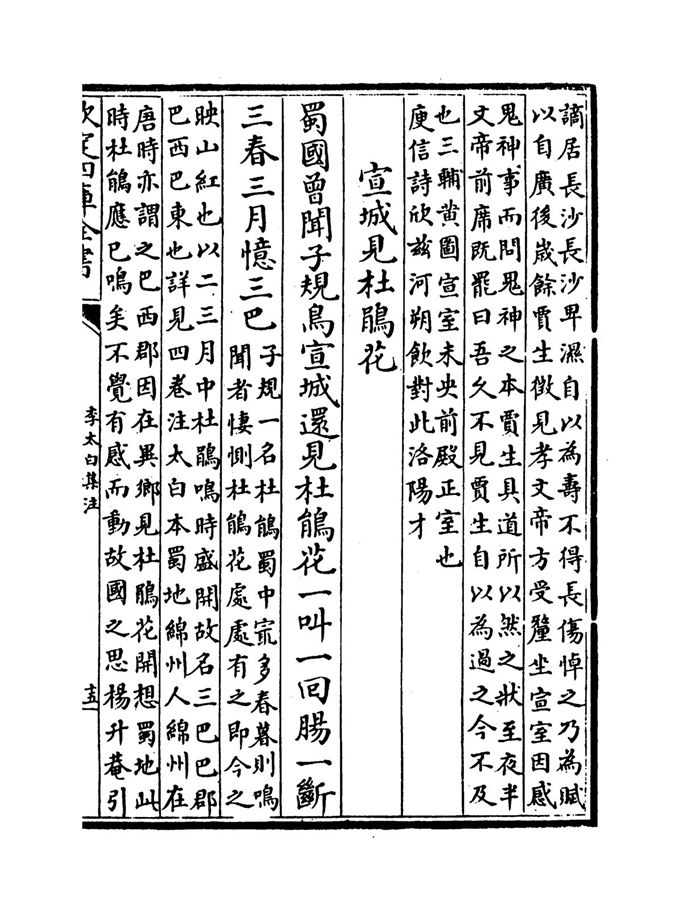 謫居長沙長沙卑濕自以為壽不得長傷悼之乃為賦
以自廣後歲餘賈生徵見孝文帝方受釐坐宣室因感
鬼神事而問鬼神之本賈生具道所以然之狀至夜半
文帝前席既罷曰吾久不見賈生自以為過之今不及
也三輔黄圖宣室未央前殿正室也
庾信詩欣兹河朔飲對此洛陽才
宣城見杜鵑花
蜀國曾聞子規鳥宣城還見杜鵑花一叫一回腸一斷
三春三月憶三巴
子規一名杜鵑蜀中㝡多春暮則鳴
聞者悽惻杜鵑花處處有之即今之
映山紅也以二三月中杜鵑鳴時盛開故名三巴巴郡
巴西巴東也詳見四卷注太白本蜀地綿州人綿州在
唐時亦謂之巴西郡因在異鄉見杜鵑花開想蜀地此
時杜鵑應巳鳴矣不覺有感而動故國之思楊升菴引
欽定四庫全書
李太白集注
十五